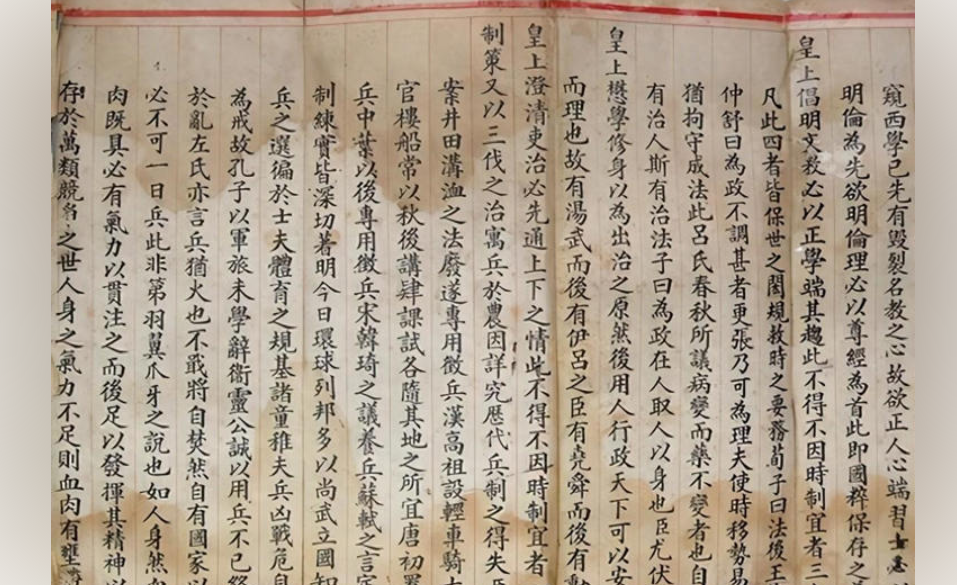 窺西學已先有毀裂名教之心故欲正人心端習士必
明倫為先欲明倫理必以尊經為首此即國粹保存之
皇上倡明文教必以正學端其趨此不得不因時制宜者三
凡此四者皆保世之閎規救時之要務荀子曰法後王
仲舒曰為政不調甚者更張乃可為理夫使時移勢易
猶拘守成法此呂氏春秋所議病變而藥不變者也自
有治人斯有治法子曰為政在人取人以身也臣尤伏
皇上懋學修身以為出治之原然後用人行政天下可以安
而理也故有湯武而後有伊呂之臣有堯舜而後有
皇上澄清吏治必先通上下之情此不得不因時制宜者
制策又以三代之治寓兵於農因詳究歷代兵制之得失
案井田溝洫之法廢遂專用徵兵漢高祖設輕車騎士
官樓船常以秋後講肄課試各隨其地之所宜唐初
兵中葉以後專用徵兵宋韓琦之議養兵蘇軾之言
制練實皆深切著明今日環球列邦多以尚武立國知
兵之選徧於士夫體育之規基諸童稚夫兵凶戰危自
為戒故孔子以軍旅未學辭衛靈公誠以用兵不已
於亂左氏亦言兵猶火也不戢將自焚然自有國家以
必不可一日兵此非第羽翼爪牙之說也如人身然
肉既具必有氣力以貫注之而後足以發揮其精神以
存於萬類競名之世人身之氣力不足則血肉有壅